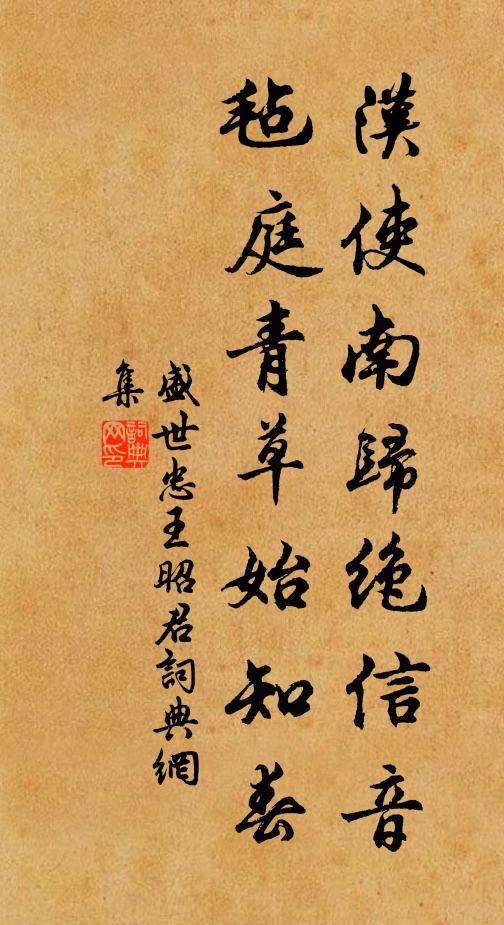 漢使南歸絶信音
氊庭青草始知春
盛世忠王昭君詞典網
集
詞典
网印